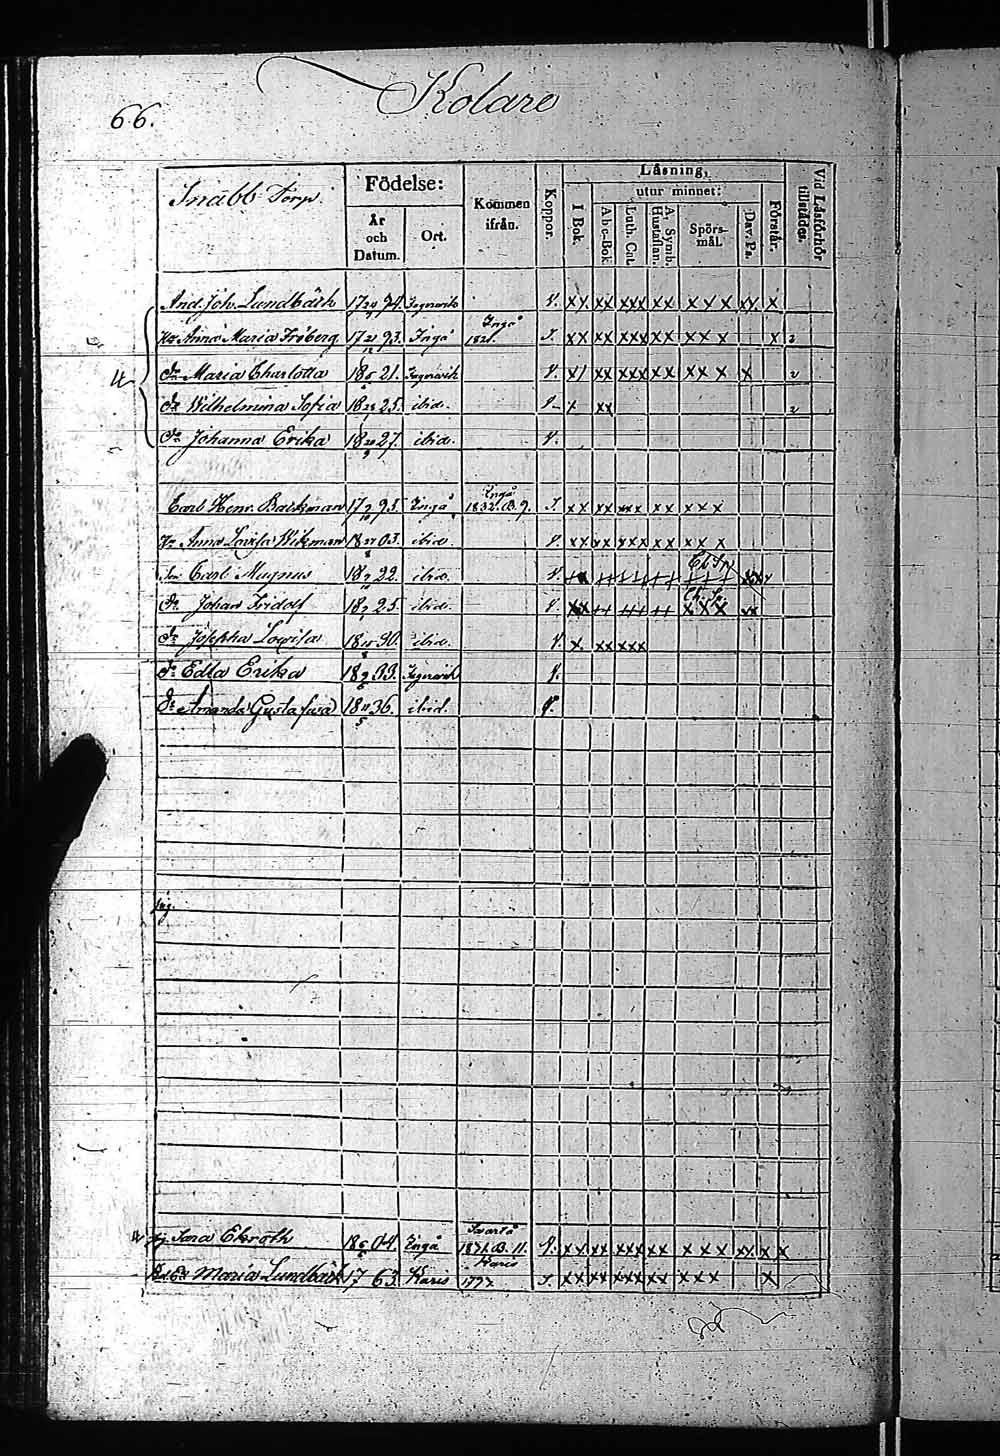 66.
Kolare
Snäbb Torp.
Födelse:
År och Datum.
Ort.
Kommen ifrån.
Koppor.
Läsning,
I Bok.
utur minnet:
Abc-Bok.
Luth. Cat.
A. Symb. Hustaflan.
Spörsmål.
Dav. Ps.
Förstår.
Vid Läsförhör tillstädes.
And. Joh. Lundbäck 17 94. V. xx xx xxx xx x x x xx x
Hu Anna Maria Fröberg 17 93. Ingå Ingå 1821. S. xx xx xxx xx xx x x 2
Dr Maria Charlotta 18 21. V. x/ xx xxx xx xx x x 2
Dr Wilhelmina Sofia 18 25. ibid. V x xx 2
Dr Johanna Erika 18 27. ibid. V.
4
Carl Henr. Backman 17 95. Ingå Ingå 1832. B. 9. S. xx xx xxx xx xxx
Hu Anna Lovisa Wikman 18 03. ibid. V. xx xx xxx xx xx x
Carl Magnus 18 22. ibid. V.
Dr Johan Fridolf 18 25. ibid. V.
Dr Josepha Lovisa 18 30. ibid. V. x. xx xxx
Dr Edla Erika 18 33. V.
Dr Amanda Gustafva 18 36. ibid. V.
Pig
Pig Sara Ekroth 18 04. Ingå Svartå 1831. B. 11. V. xx xx xxx xx x x x xx x x
Maria Lundbäck 17 63. Karis Karis 1797. S. xx xx xxx xx xxx x